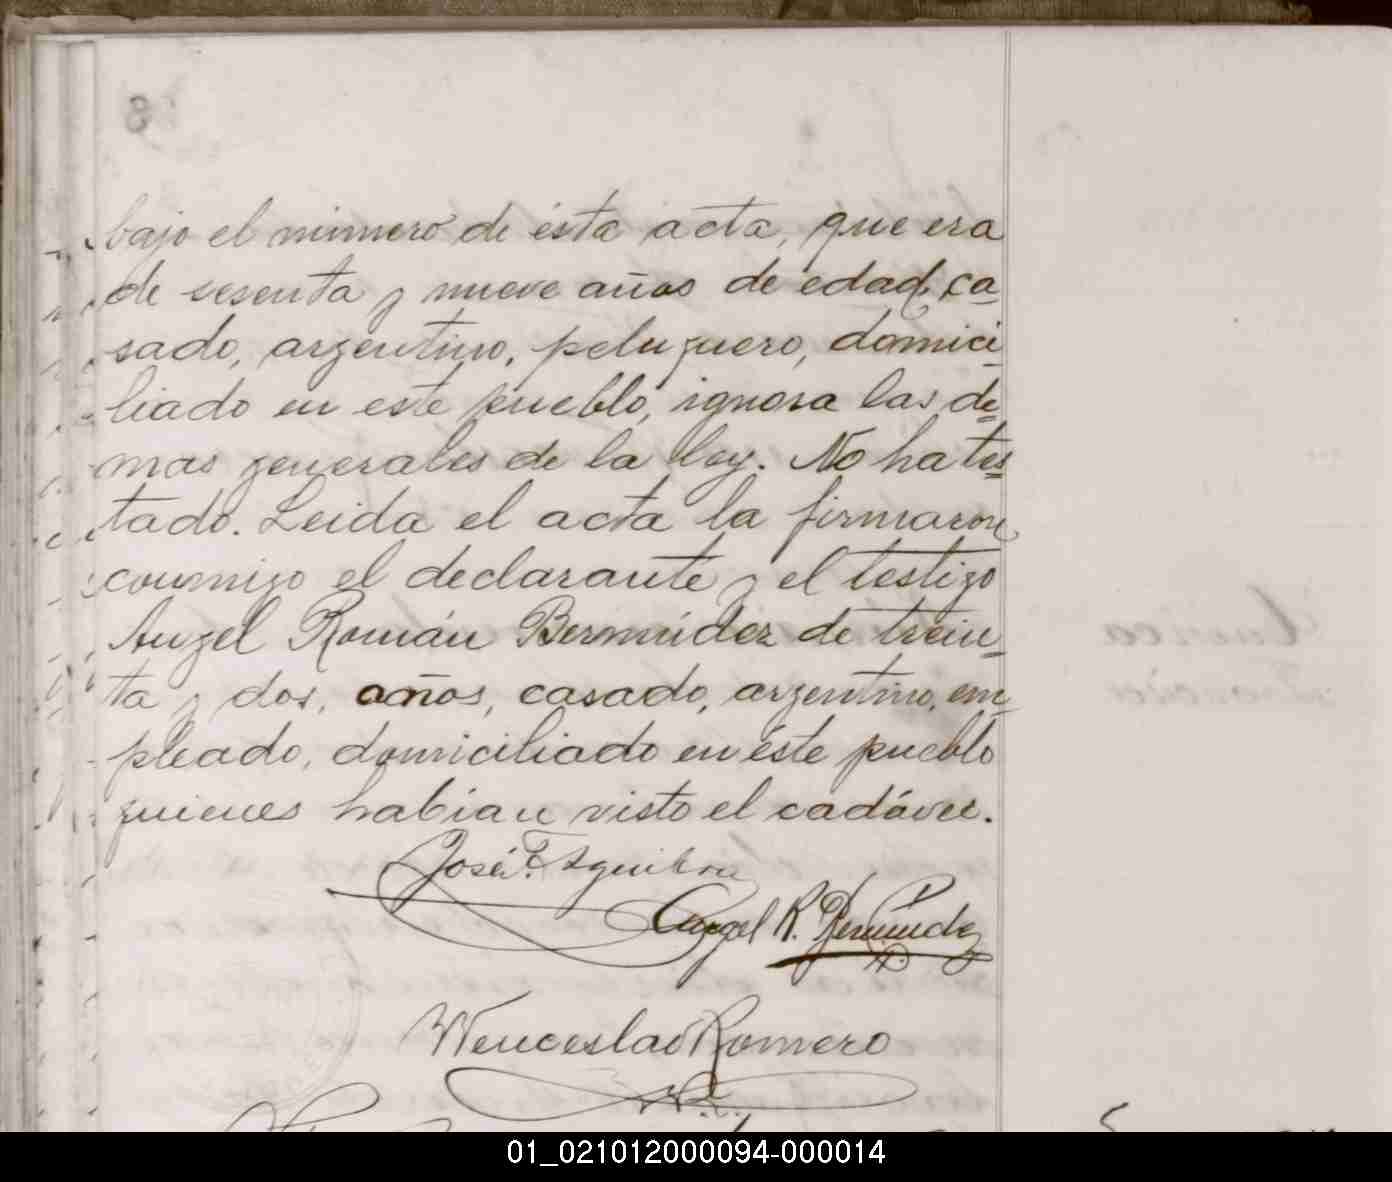 bajo el número de ésta acta, que era
de sesenta y nueve años de edad, ca-
sado, argentino, peluquero, domici-
liado en este pueblo, ignora las de-
mas generales de la ley. No ha tes-
tado. Leida el acta la firmaron
conmigo el declarante y el testigo
Angel Román Bermúdez de trein-
ta y dos, años, casado, argentino, em
pleado, domiciliado en éste pueblo
quienes habían visto el cadáver.
José E. Esquibra
Angel R. Bermúdez
Wenceslao Romero
01_021012000094-000014